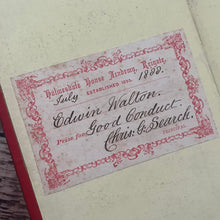 Holmesdale House Academy, Reigate,
ESTABLISHED
July 1880.
Edwin Walton.
Prize for Good Conduct.
Chas. G. Bearck.
PRINCIPAL